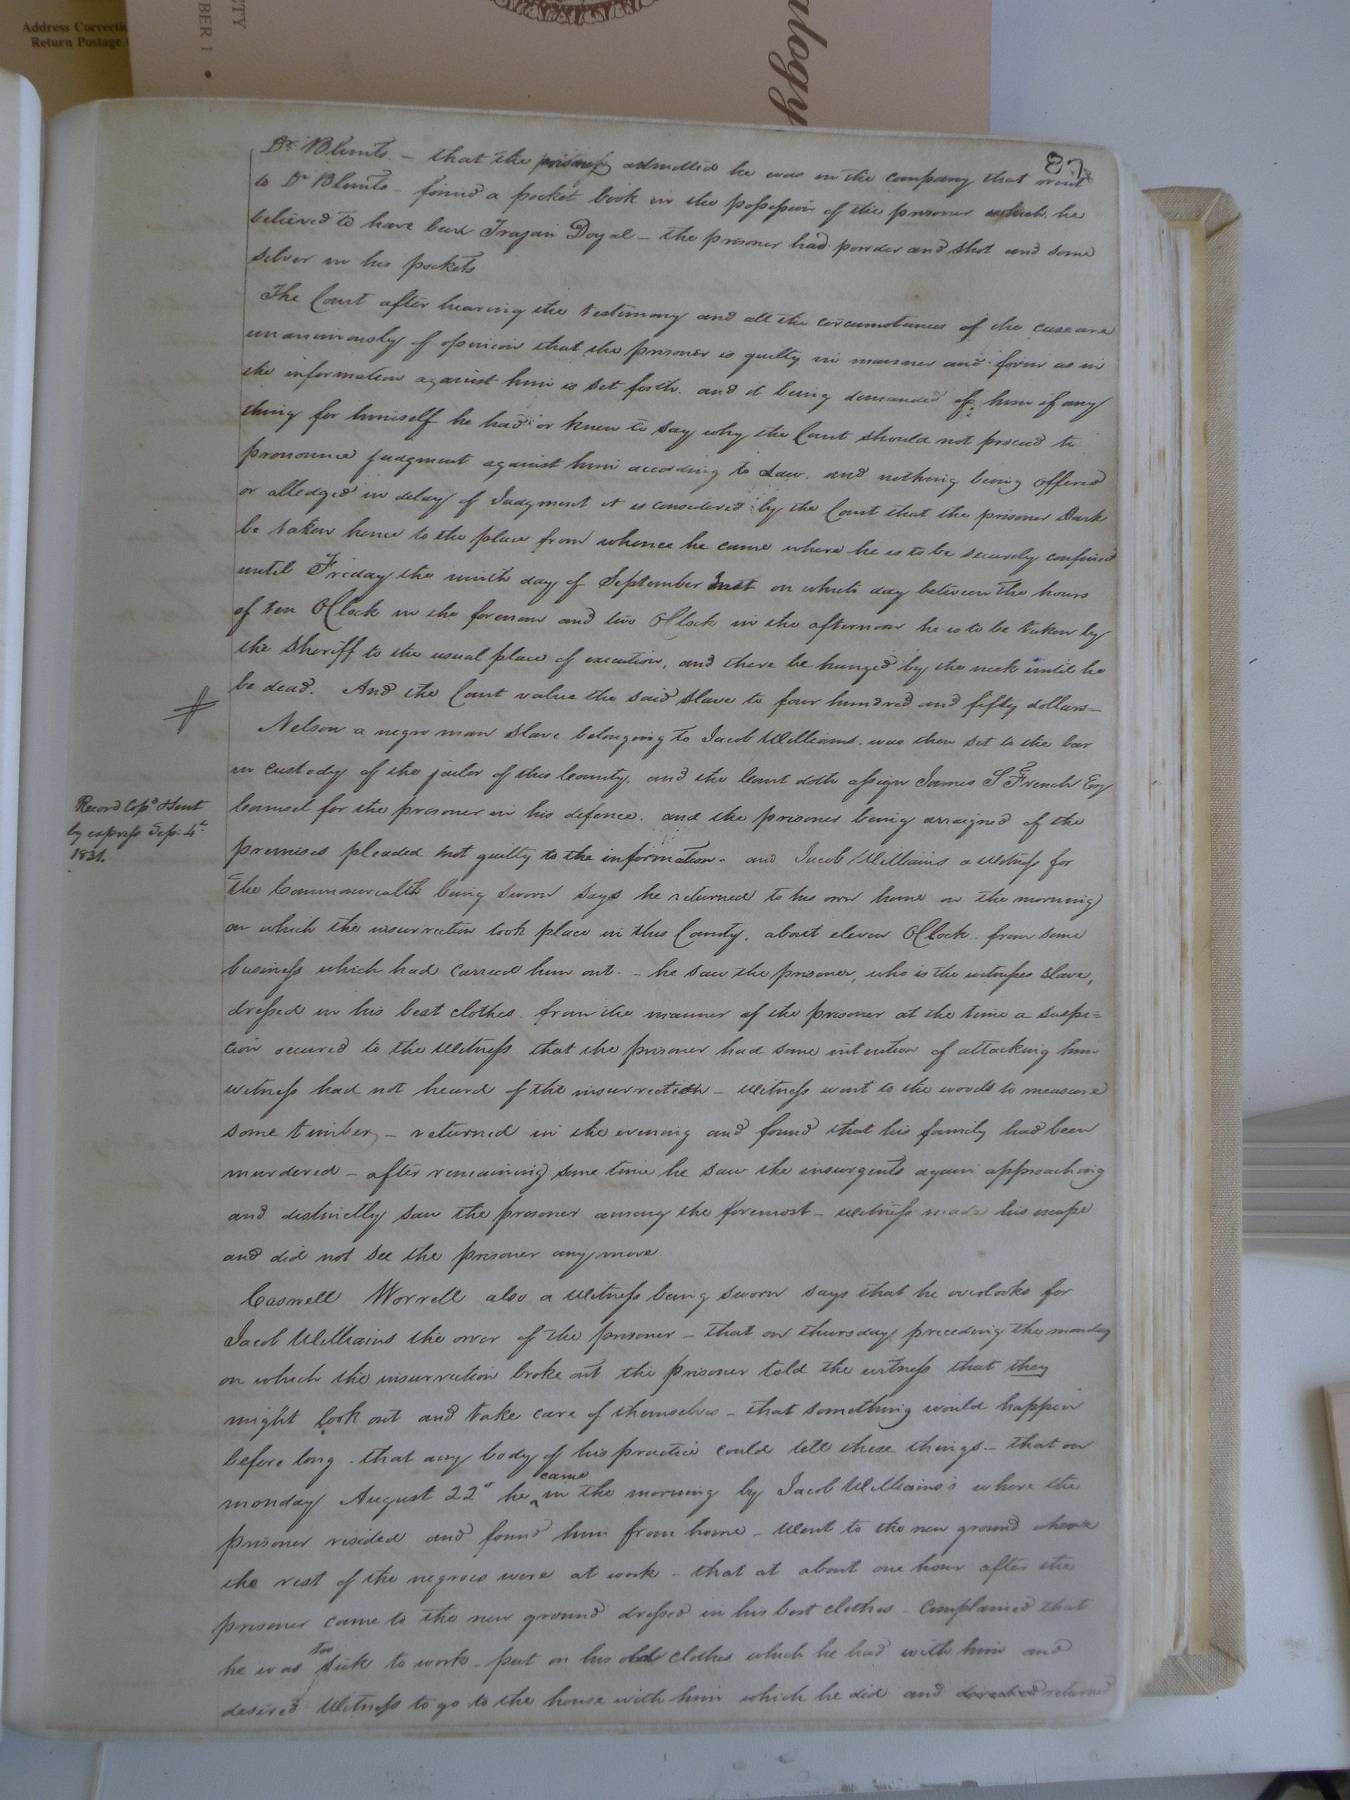 Address Correcti
Return Postage
TY
BER 1 •
alogy
87
Dr. Blunts. – that the prisoner admitted he was in the company that went
to Dr Blunts – found a pocket book in the possession of the prisoner which he
believed to have been Trajan Doyal – the prisoner had powder and shot and some
silver in his pockets
The Court after hearing the testimony and all the circumstances of the case are
unanimously of opinion that the prisoner is guilty in manner and form as in
the information against him is set forth. and it being demanded of him if any
thing for himself he had or knew to say why the Court should not proceed to
pronounce judgment against him according to Law. and nothing being offered
or alledged in delay of Judgment it is considered by the Court that the prisoner Dark
be taken hence to the place from whence he came where he is to be securely confined
until Friday the ninth day of September Inst on which day between the hours
of ten OClock in the forenoon and two OClock in the afternoon he is to be taken by
the Sheriff to the usual place of execution, and there be hanged by the neck until he
be dead. And the Court value the said slave to four hundred and fifty dollars –
Nelson a negro man slave belonging to Jacob Williams. was then set to the bar
in custody of the jailor of this County. and the Court doth assign James S French Esq
Counsel for the prisoner in his defence. and the prisoner being arraigned of the
Record Copd & sent
by express Sep: 4th
1831.
premises pleaded not guilty to the information. and Jacob Williams a witness for
The Commonwealth being sworn says he returned to his own home on the morning
on which the insurrection took place in this County. about eleven OClock from some
business which had carried him out. – he saw the prisoner, who is the witnesses slave,
dressed in his best clothes. from the manner of the prisoner at the time a suspi=
cion occured to the witness that the prisoner had some intention of attacking him
witness had not heard of the insurrection – witness went to the woods to measure
some timber – returned in the evening and found that his family had been
murdered – after remaining some time he saw the insurgents again approaching
and distinctly saw the prisoner among the foremost – witness made his escape
and did not see the prisoner any more.
Caswell Worrell also a witness being sworn says that he overlooks for
Jacob Williams the owner of the prisoner – that on thursday preceding the monday
on which the insurrection broke out the prisoner told the witness that they
might look out and take care of themselves – that something would happen
before long. that any body of his practice could tell these things. – that on
monday August 22d he came in the morning by Jacob Williams's where the
prisoner resided and found him from home – went to the new ground where
the rest of the negroes were at work – that at about one hour after the
prisoner came to the new ground dressed in his best clothes – complained that
he was too sick to work – put on his old clothes which he had with him and
desired witness to go to the house with him which he did and returned